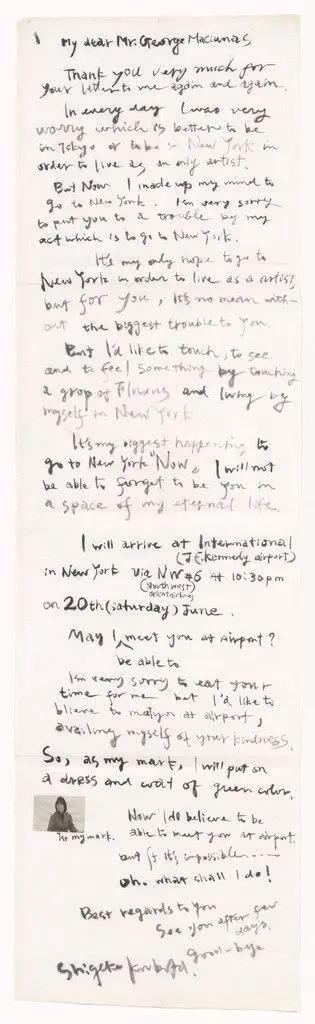 My dear Mr. George Maciunas
Thank you very much for
your letter to me again and again.
In every day I was very
worry which is better to be
in Tokyo or to be in New York in
order to live as an only artist.
But Now I made up my mind to
go to New York. I'm very sorry
to put you to a trouble by my
act which is to go to New York.
It's my only hope to go to
New York in order to live as a artist,
but for you, It's no mean with-
out the biggest trouble to you.
But I'd like to touch, to see
and to feel something by touching
a grop of Fluxus and living by
myself in New York
It's my biggest happening to
go to New York "Now. I will not
be able to forget to be you in
a space of my eternal life.
I will arrive at International
(J.F. Kennedy airport)
in New York via NW#6 at 10:30pm
(Northwest
orient airlines)
on 20th (saturday) June.
May I meet you at airport?
be able to
I'm very sorry to eat your
time for me but I'd like to
blieve to meet you at airport,
availing myself of your kindness.
So, as my mark, I will put on
a dress and coat of green color.
Now I do believe to be
able to meet you at airport.
my mark.
but if it's impossible......
oh. what shall I do!
Best regards to you
See you after few
days.
good-bye
Shigeko Kubota.